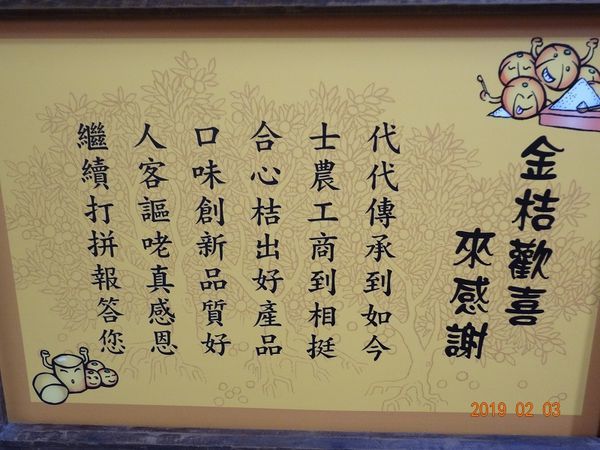 金桔歡喜
來感謝
代代傳承到如今
士農工商到相挺
合心桔出好產品
口味創新品質好
人客謳咾真感恩
繼續打拼報答您
2019 02 03